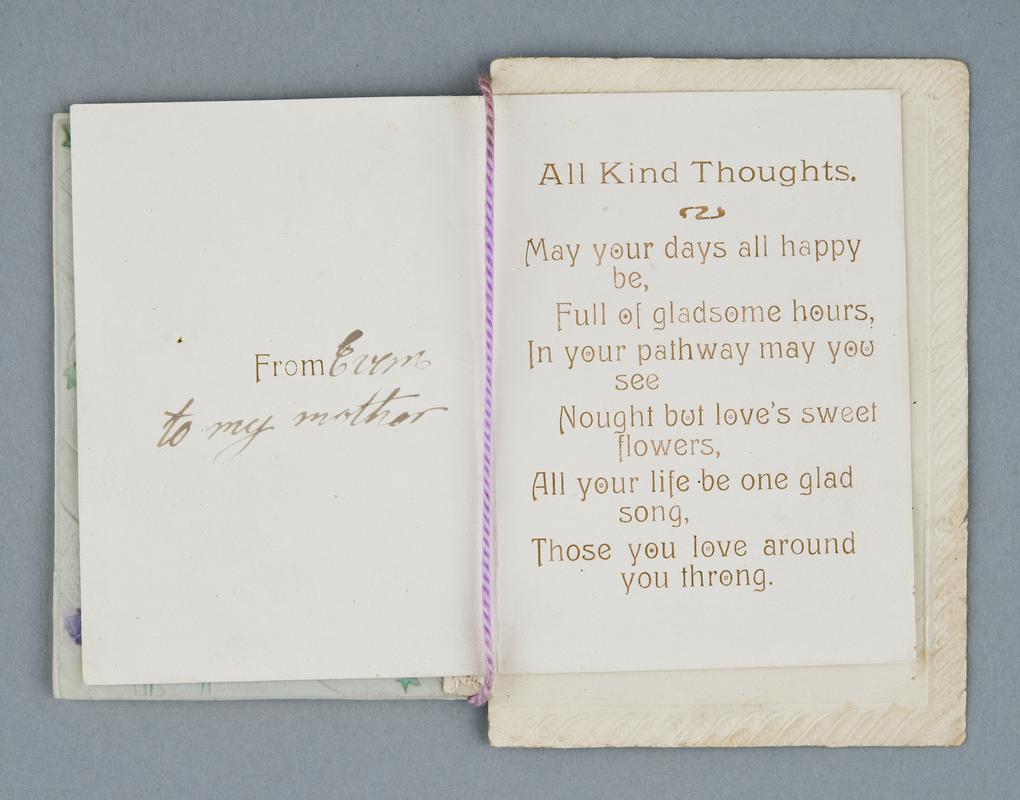 From Evan
to my mother
All Kind Thoughts.
May your days all happy
be,
Full of gladsome hours,
In your pathway may you
see
Nought but love's sweet
flowers,
All your life be one glad
song,
Those you love around
you throng.